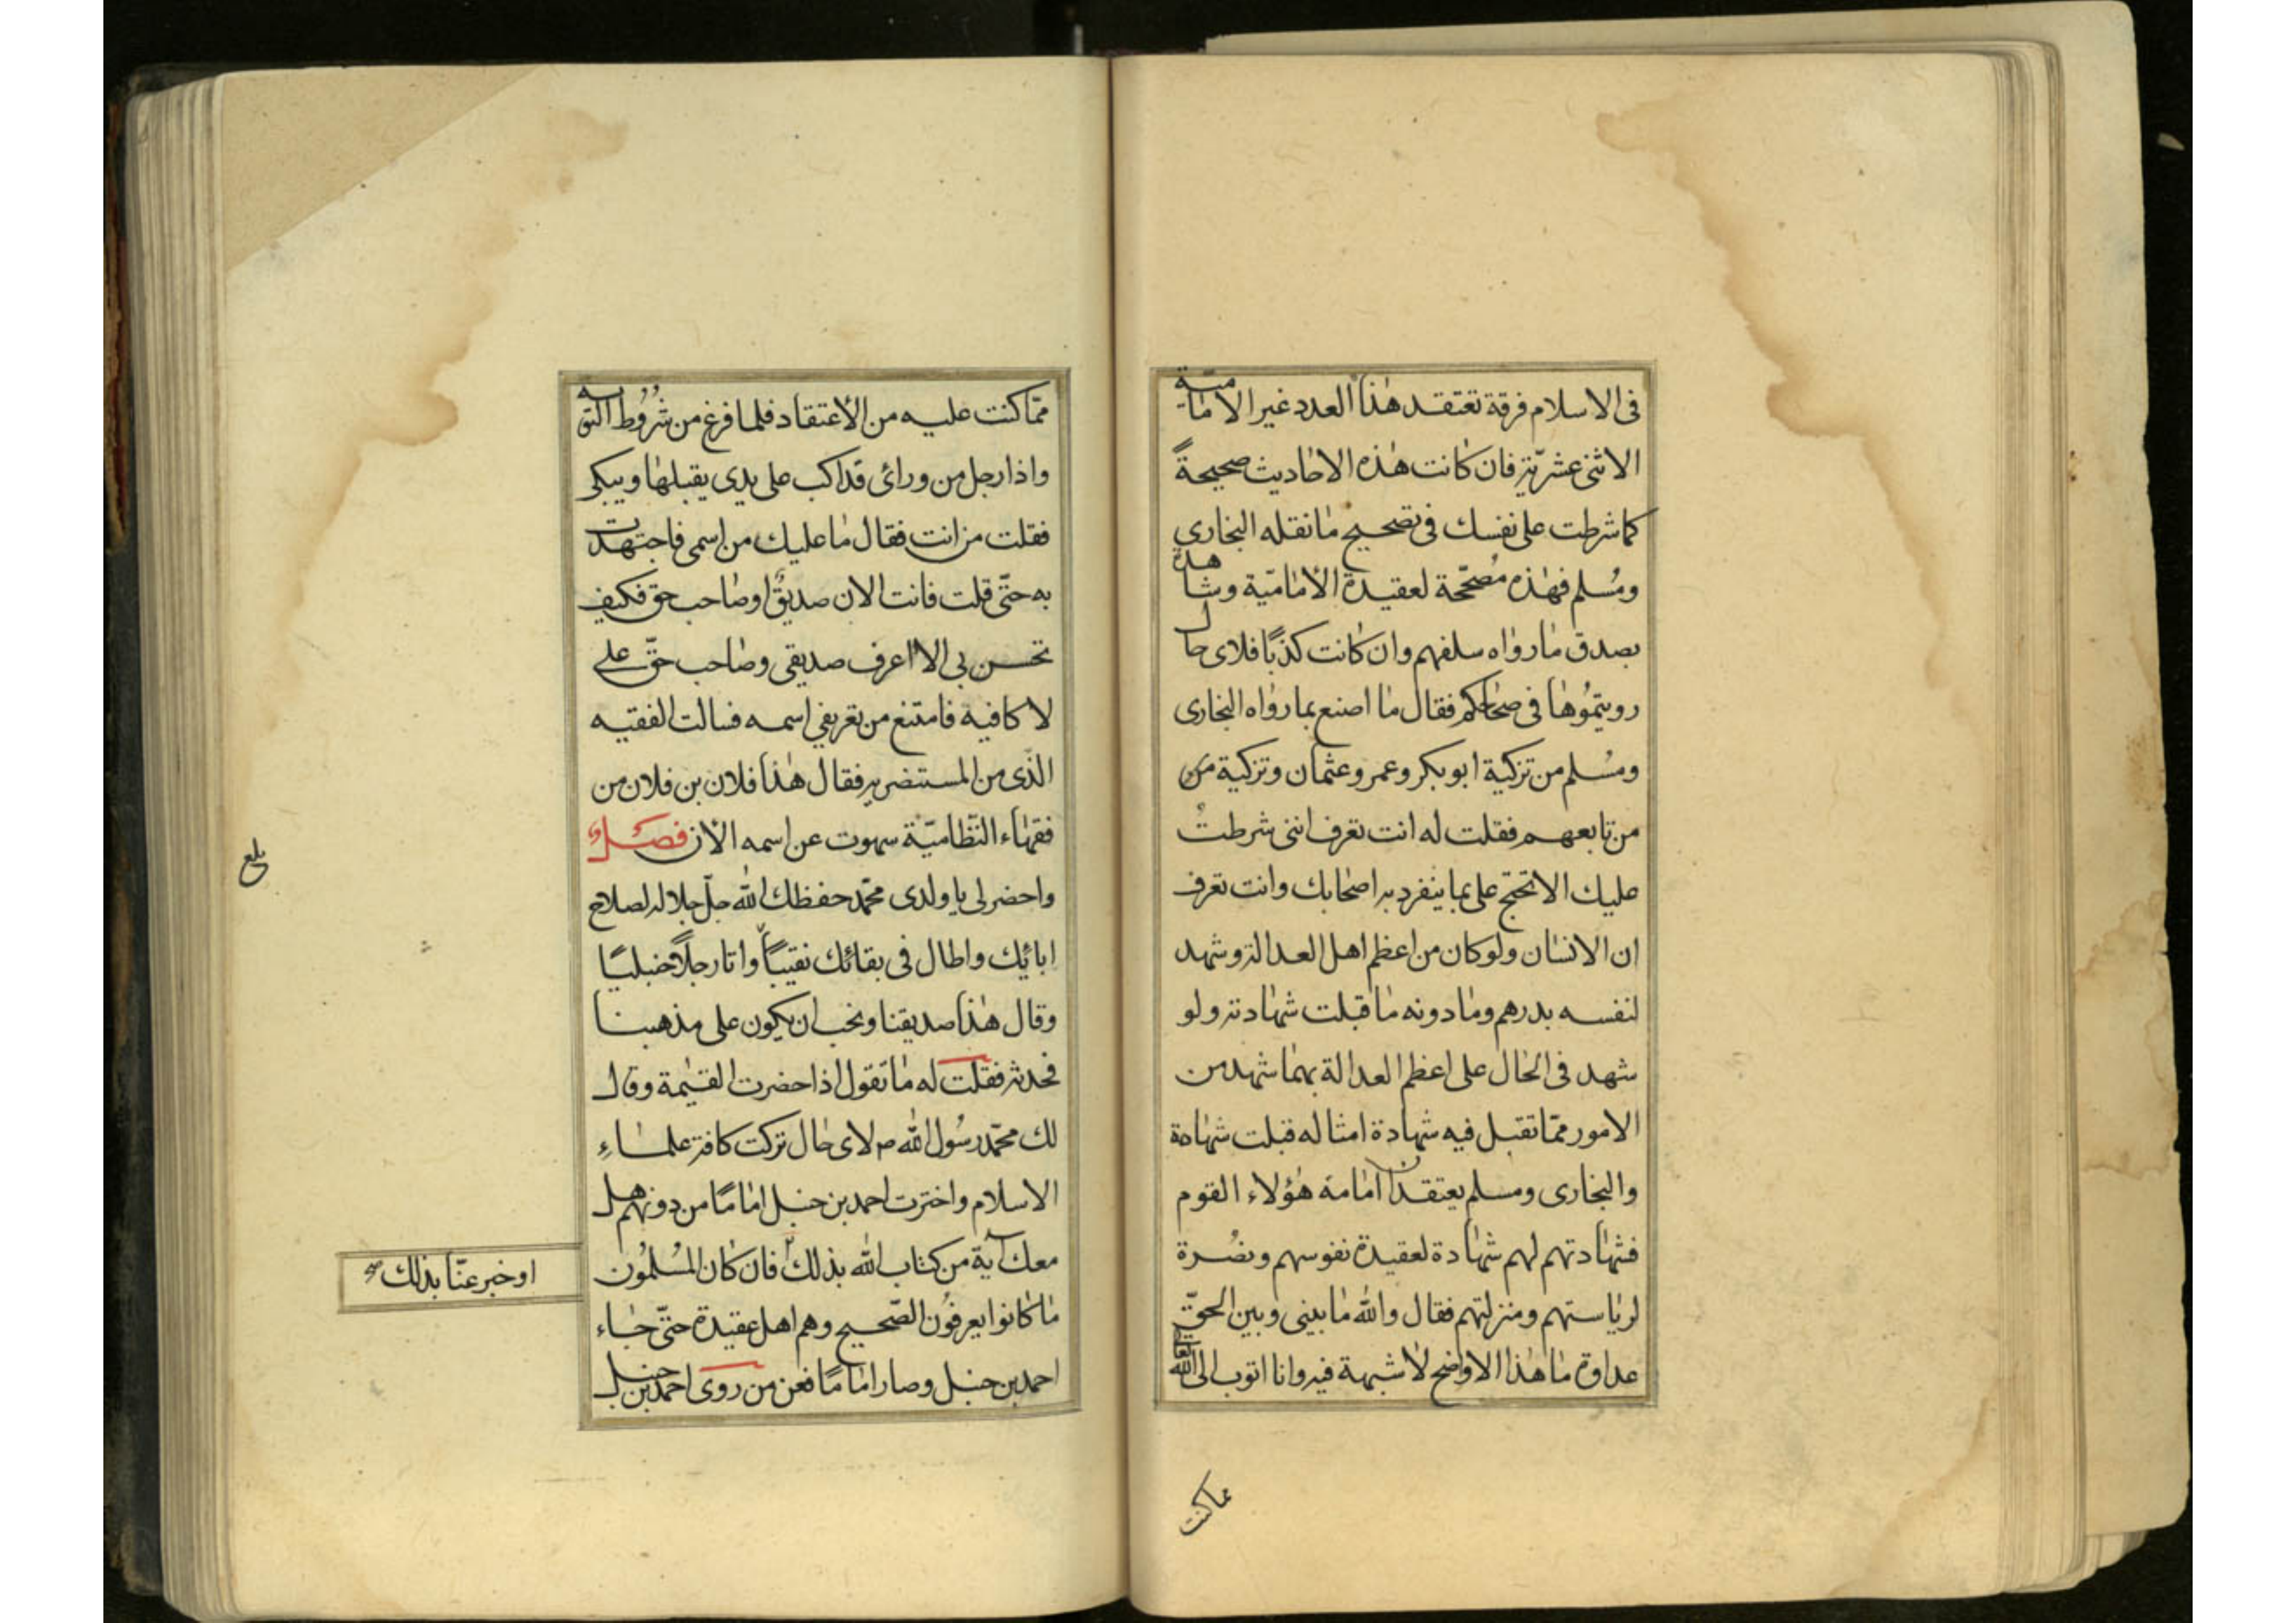 فى الاسلام فرقة تعتقد هذا العدد غير الامامية
الاثنى عشرية فان كانت هذه الاحاديث صحيحةً
كما شرطت على نفسك فى تصحيح ما نقله البخارى
ومُسلم فهذه مُصحّحة لعقيدة الأماميّة وشاهدة
بصدق ما رواه سلفهم وان كانت كذبًا فلاى حال
رويتمُوها فى صحاحكم فقال ما اصنع بما رواه البخارى
ومُسلم من تزكية ابو بكر وعمر وعثمان وتزكية من
من تابعهم فقلت له انت تعرف اننى شرطتُ
عليك الا تحتج على بما ينفرد به اصحابك وانت تعرف
ان الانسان ولو كان من اعظم اهل العدالة وشهد
لنفسه بدرهم وما دونه ما قبلت شهادته ولو
شهد فى الحال على اعظم العدالة بهما شهد من
الامور ممّا تقبل فيه شهادة امثاله قبلت شهادة
والبخارى ومسلم يعتقدان امامة هؤلاء القوم
فشهادتهم لهم شهادة لعقيدة نفوسهم ونصُرة
لرياستهم ومنزلتهم فقال والله ما بينى وبين الحقّ
عداوة ما هذا الا واضح لا شبهة فيه وانا اتوب الى الله تعالى
مما كنت
ممّا كنت عليه من الأعتقاد فلما فرغ من شرُوُط التوبه
واذا رجل من ورائى قد اكب على يدى يقبلها ويبكى
فقلت من انت فقال ما عليك من اسمى فاجتهدت
به حتّى قلت فانت الان صديقٌ او صاحب حق فكيف
تحسن بى الا اعرف صديقى وصاحب حقّ على
لاكافيه فامتنع من تعريفى اسمه فسالت الفقيه
الذّى من المستنصريه فقال هذا فلان بن فلان من
فقهاء النّظاميّة سهوت عن اسمه الأن فصل
واحضر لى يا ولدى محمّد حفظك الله جلّ جلاله لصلاح
ابائك واطال فى بقائك نقيباً واتا رجلاً حنبليًا
وقال هذا صديقنا ونحب ان يكون على مذهبنا
فحدثه فقلت له ما تقول اذا حضرت القيمة وقال
لك محمّد رسُول الله ص لاى حال تركت كافة علماءِ
الاسلام واخترت احمد بن حنبل امامًا من دونهم هل
معك آية من كتاب الله بذلك فان كان المُسلمُون
او خبر عنّا بذلك صح
ما كانوا يعرفُون الصّحيح وهم اهل عقيدة حتّى جاء
احمد بن حنبل وصار امامًا فعن من روى احمد بن حنبل
بلغ